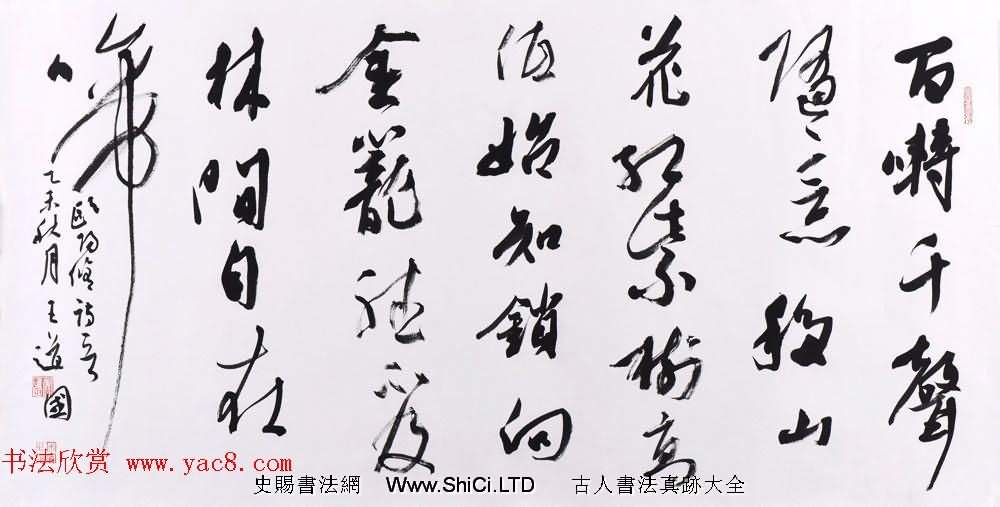 百囀千聲
隨意移山
花紅紫樹高
低始知鎖向
金籠聽不及
林間自在
啼
歐陽修詩
乙未秋月 王道國
书法欣赏 www.yac8.com
史賜書法網 Www.ShiCi.LTD 古人書法真跡大全